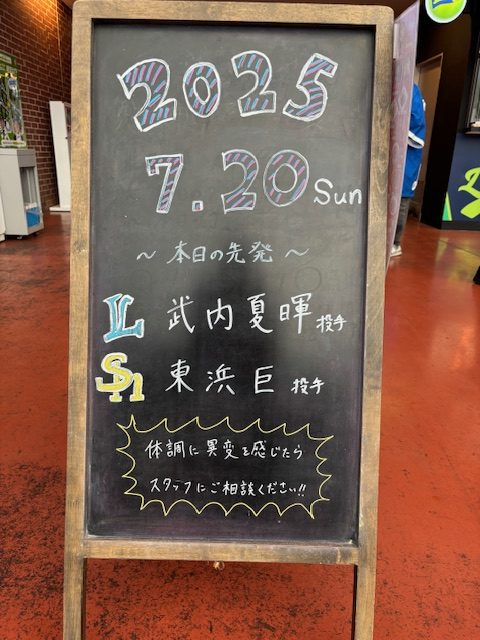 2025
7.20 Sun
～ 本日の先発 ～
L 武内夏暉 投手
SH 東浜巨 投手
体調に異変を感じたら
スタッフにご相談ください!!